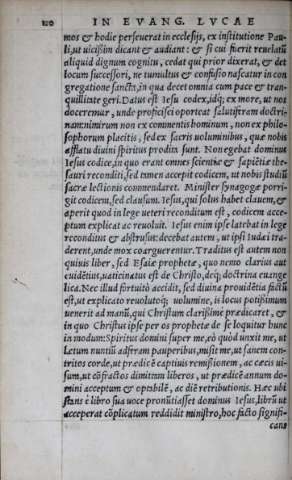 120 IN EVANG. LVCAE
mos & hodie perseuerat in ecclesijs, ex institutione Pau-
li, ut uicissim dicant & audiant: & si cui fuerit reuelatũ
aliquid dignum cognitu, cedat qui prior dixerat, & det
locum successori, ne tumultus & confusio nascatur in con
gregatione sancta, in qua decet omnia cum pace & tran-
quillitate geri. Datus est Iesu codex, idq; ex more, ut nos
doceremur, unde proficisci oporteat salutiferam doctri-
nam: nimirum non ex commentis hominum, non ex philo-
sophorum placitis, sed ex sacris uoluminibus, quæ nobis
afflatu diuini spiritus prodita sunt. Non egebat dominus
Iesus codice, in quo erant omnes scientiæ & sapiẽtiæ the-
sauri reconditi, sed tamen accepit codicem, ut nobis studiũ
sacræ lectionis commendaret. Minister synagogæ porri-
git codicem, sed clausum. Iesus, qui solus habet clauem, &
aperit quod in lege ueteri reconditum est, codicem acce-
ptum explicat ac reuoluit. Iesus enim ipse latebat in lege
reconditus & abstrusus: decebat autem, ut ipsi Iudæi tra-
derent, unde mox coarguerentur. Traditus est autem non
quiuis liber, sed Esaiæ prophetæ, quo nemo clarius aut
euidẽtius, uaticinatus est de Christo, deq; doctrina euange
lica. Nec illud fortuitò accidit, sed diuina prouidẽtia factũ
est, ut explicato reuolutoq; uolumine, is locus potissimum
uenerit ad manũ, qui Christum clarissimè prædicaret, &
in quo Christus ipse per os prophetæ de se loquitur hunc
in modum: Spiritus domini super me, eò quòd unxit me, ut
lætum nuntiũ adferam pauperibus, misit me, ut sanem con-
tritos corde, ut prædicẽ captiuis remissionem, ac cæcis ui-
sum, ut cõfractos dimittam liberos, ut prædicẽ annum do-
mini acceptum & optabilẽ, ac diẽ retributionis. Hæc ubi
stans è libro sua uoce pronũtiasset dominus Iesus, librũ ut
acceperat cõplicatum reddidit ministro, hoc facto signifi-
cans